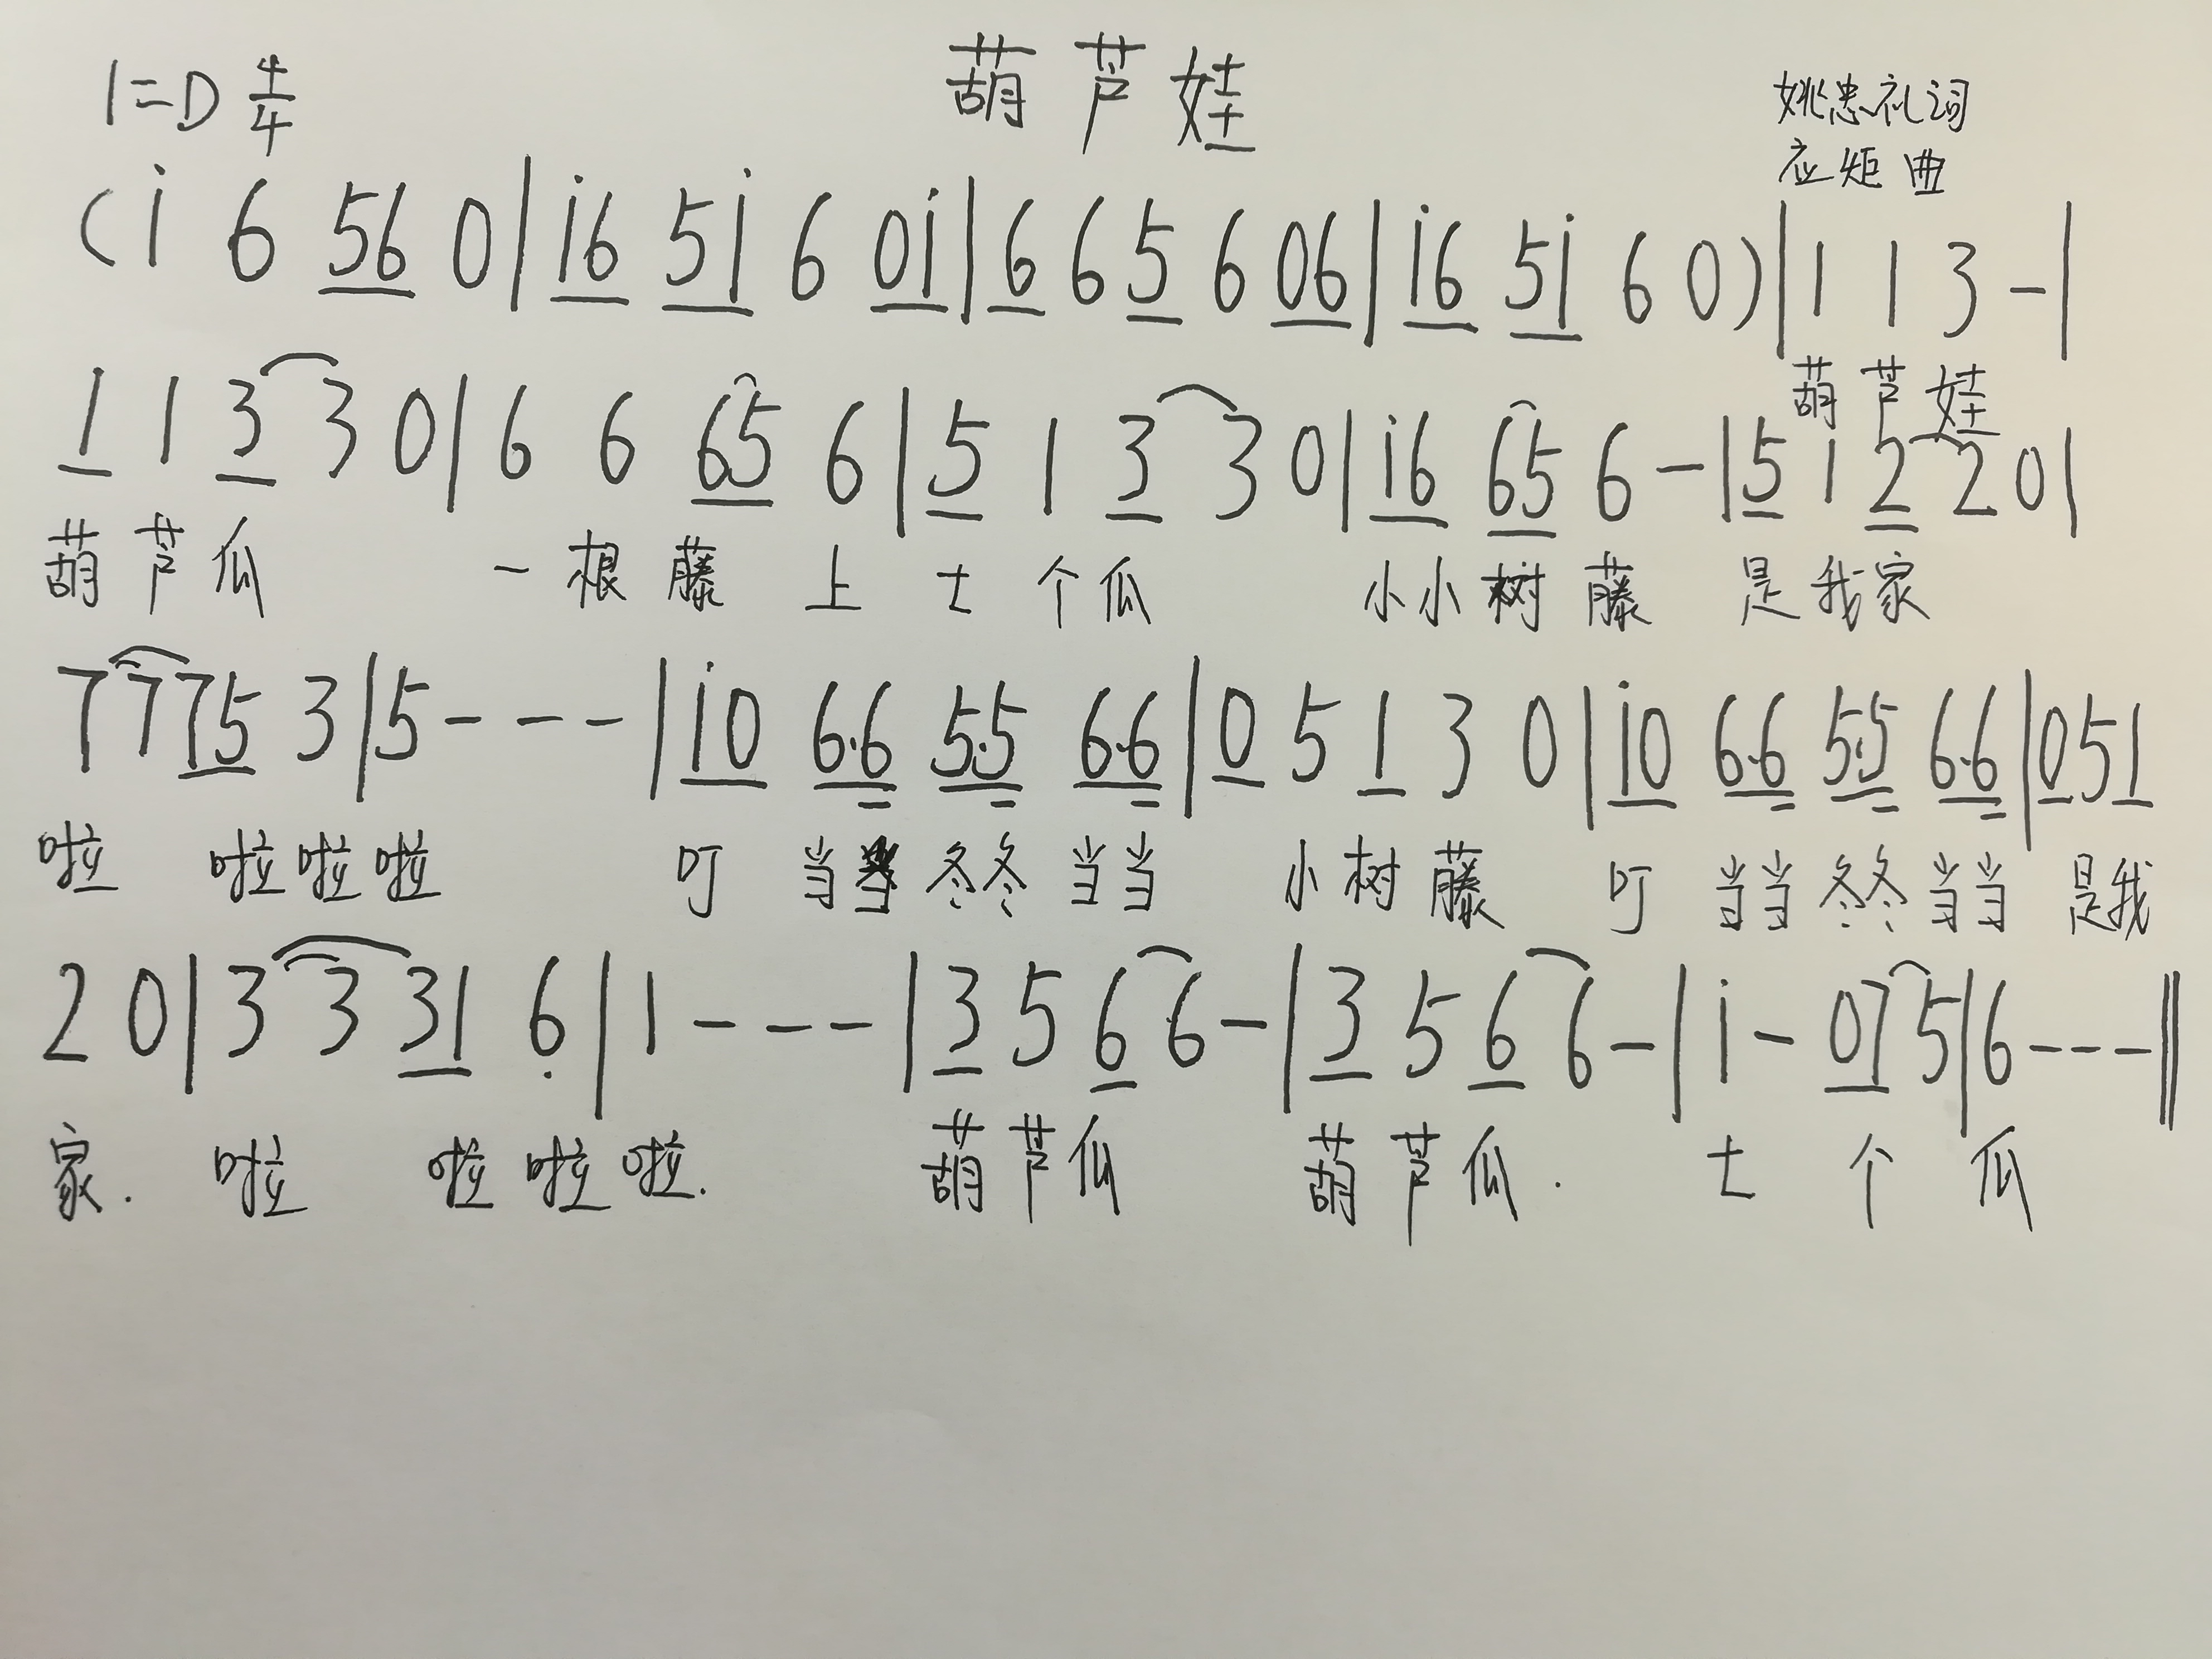 1=D 4/4
葫芦娃
姚忠礼词
应炬曲
(i 6 56 0|i6 5i 6 0i|6 6 5 6 06|i6 5i 6 0)|1 1 3 -|
葫芦娃
1 1 3 3 0|6 6 65 6|5 1 3 3 0|i6 65 6 -|5 1 2 2 0|
葫芦瓜 一根藤上七个瓜 小小树藤 是我家
7 7 75 3|5 - - -|i0 6·6 5·5 6·6|0 5 1 3 0|i0 6·6 5·5 6·6|0 5 1
啦 啦啦啦 叮 当当 冬冬 当当 小树藤 叮 当当 冬冬 当当 是我
2 0|3 3 31 6̣|1 - - -|3 5 6 6 -|3 5 6 6 -|i - 07 5|6 - - -‖
家. 啦 啦啦啦. 葫芦瓜 葫芦瓜. 七个瓜